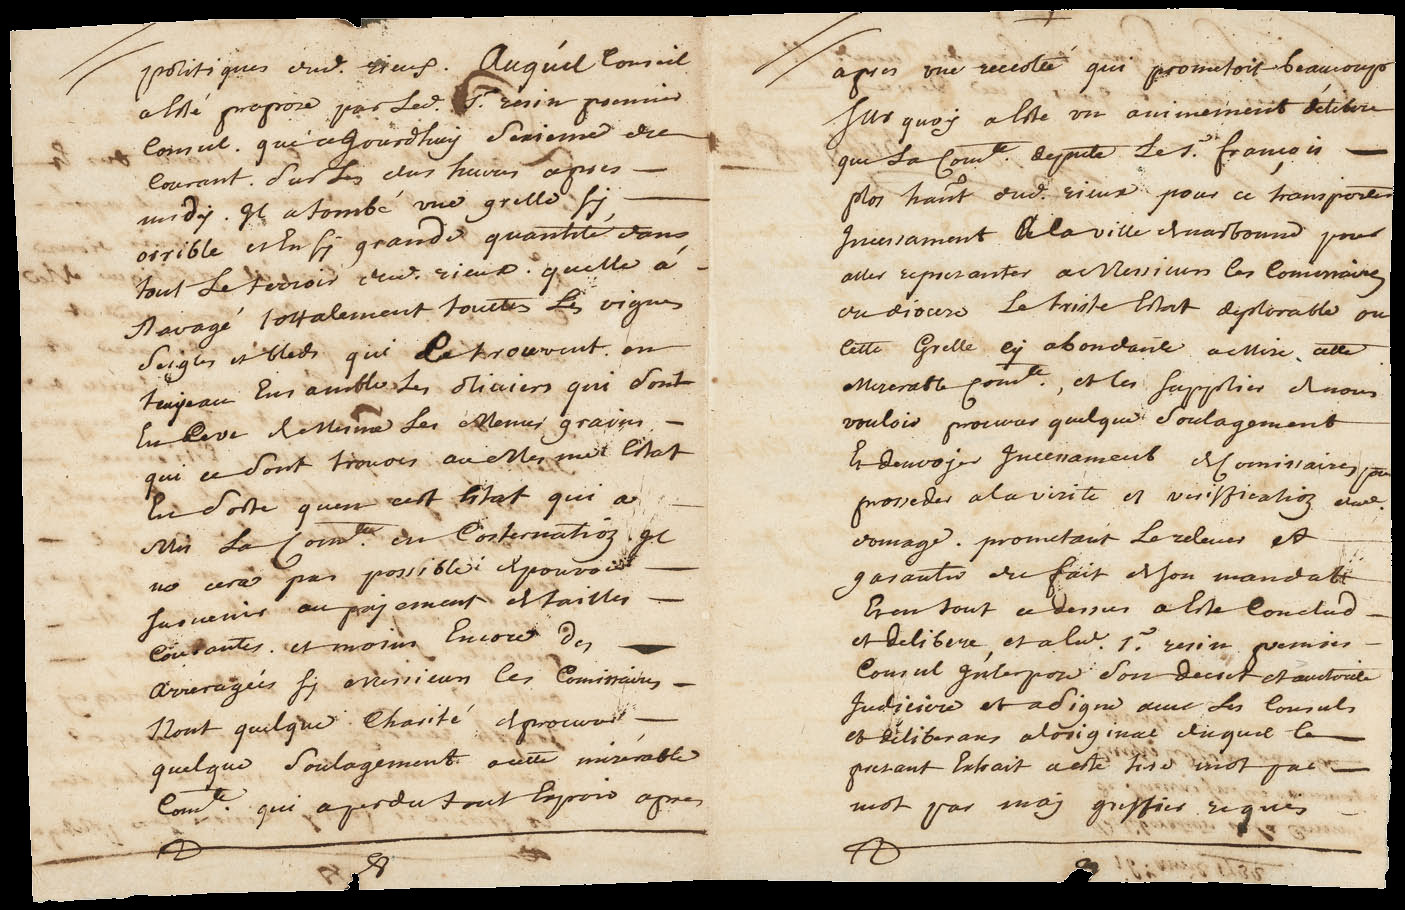 politiques dud. rieux. Auquel Conseil
a esté propozé par led. Sr. resin premier
Consul. que ce Jourdhuy dixieme du
Courant. sur les dus hures apres
midy. Il a tombé une grelle sy
orrible et En sy grande quantité dans
tout Le terroir dud. rieux. quelle a
Ravagé tottalement touttes Les vignes
seigles et bleds qui Se trouvent. en
tuyeau Ensamble Les oliviers qui sont
En Seve de Mesme Les Menus grains
qui ce sont trouvés au Mesme Estat
En sorte quen cest Estat qui a
Mis La Comte. en Costernation Il
ne cera pas possible de pouvoir
Suvenir au payement de tailles
Courantes. et moins Encore des
Arreragées sy Messieurs les Comissaires
Nont quelque Charité de procurer
quelque soulagement a cette misérable
Comte. qui a perdu tout Espoir apres
apres une recolté qui prometoit beaucoup
Sur quoy a esté un animement délibéré
que La Comte. depute Le Sr. françois
plos hant dud. rieux pour ce transporter
Incessament A la ville de narbonne pour
aller representer a Messieurs les Comissaires
du diocere Le triste Estat deplorable ou
Cette Grelle cy abondante a Mise cette
Miserable Comte., et les supplier de nous
vouloir procurer quelque soulagement
Et denvoyer Incessament de Comissaires pour
prosseder a la virite et veriffication dud.
domage. prometant Le relever et
garantir du fait de son mandatt
Et en tout ce dessus a esté Conclud
et delibere, et a led. Sr. resin premier
Consul Interpoze son decret et authorité
Judiciere et a signé avec Les Consuls
et deliberans a loriginal duquel le
presant Extrait a esté tiré mot par
mot par moy greffier reques